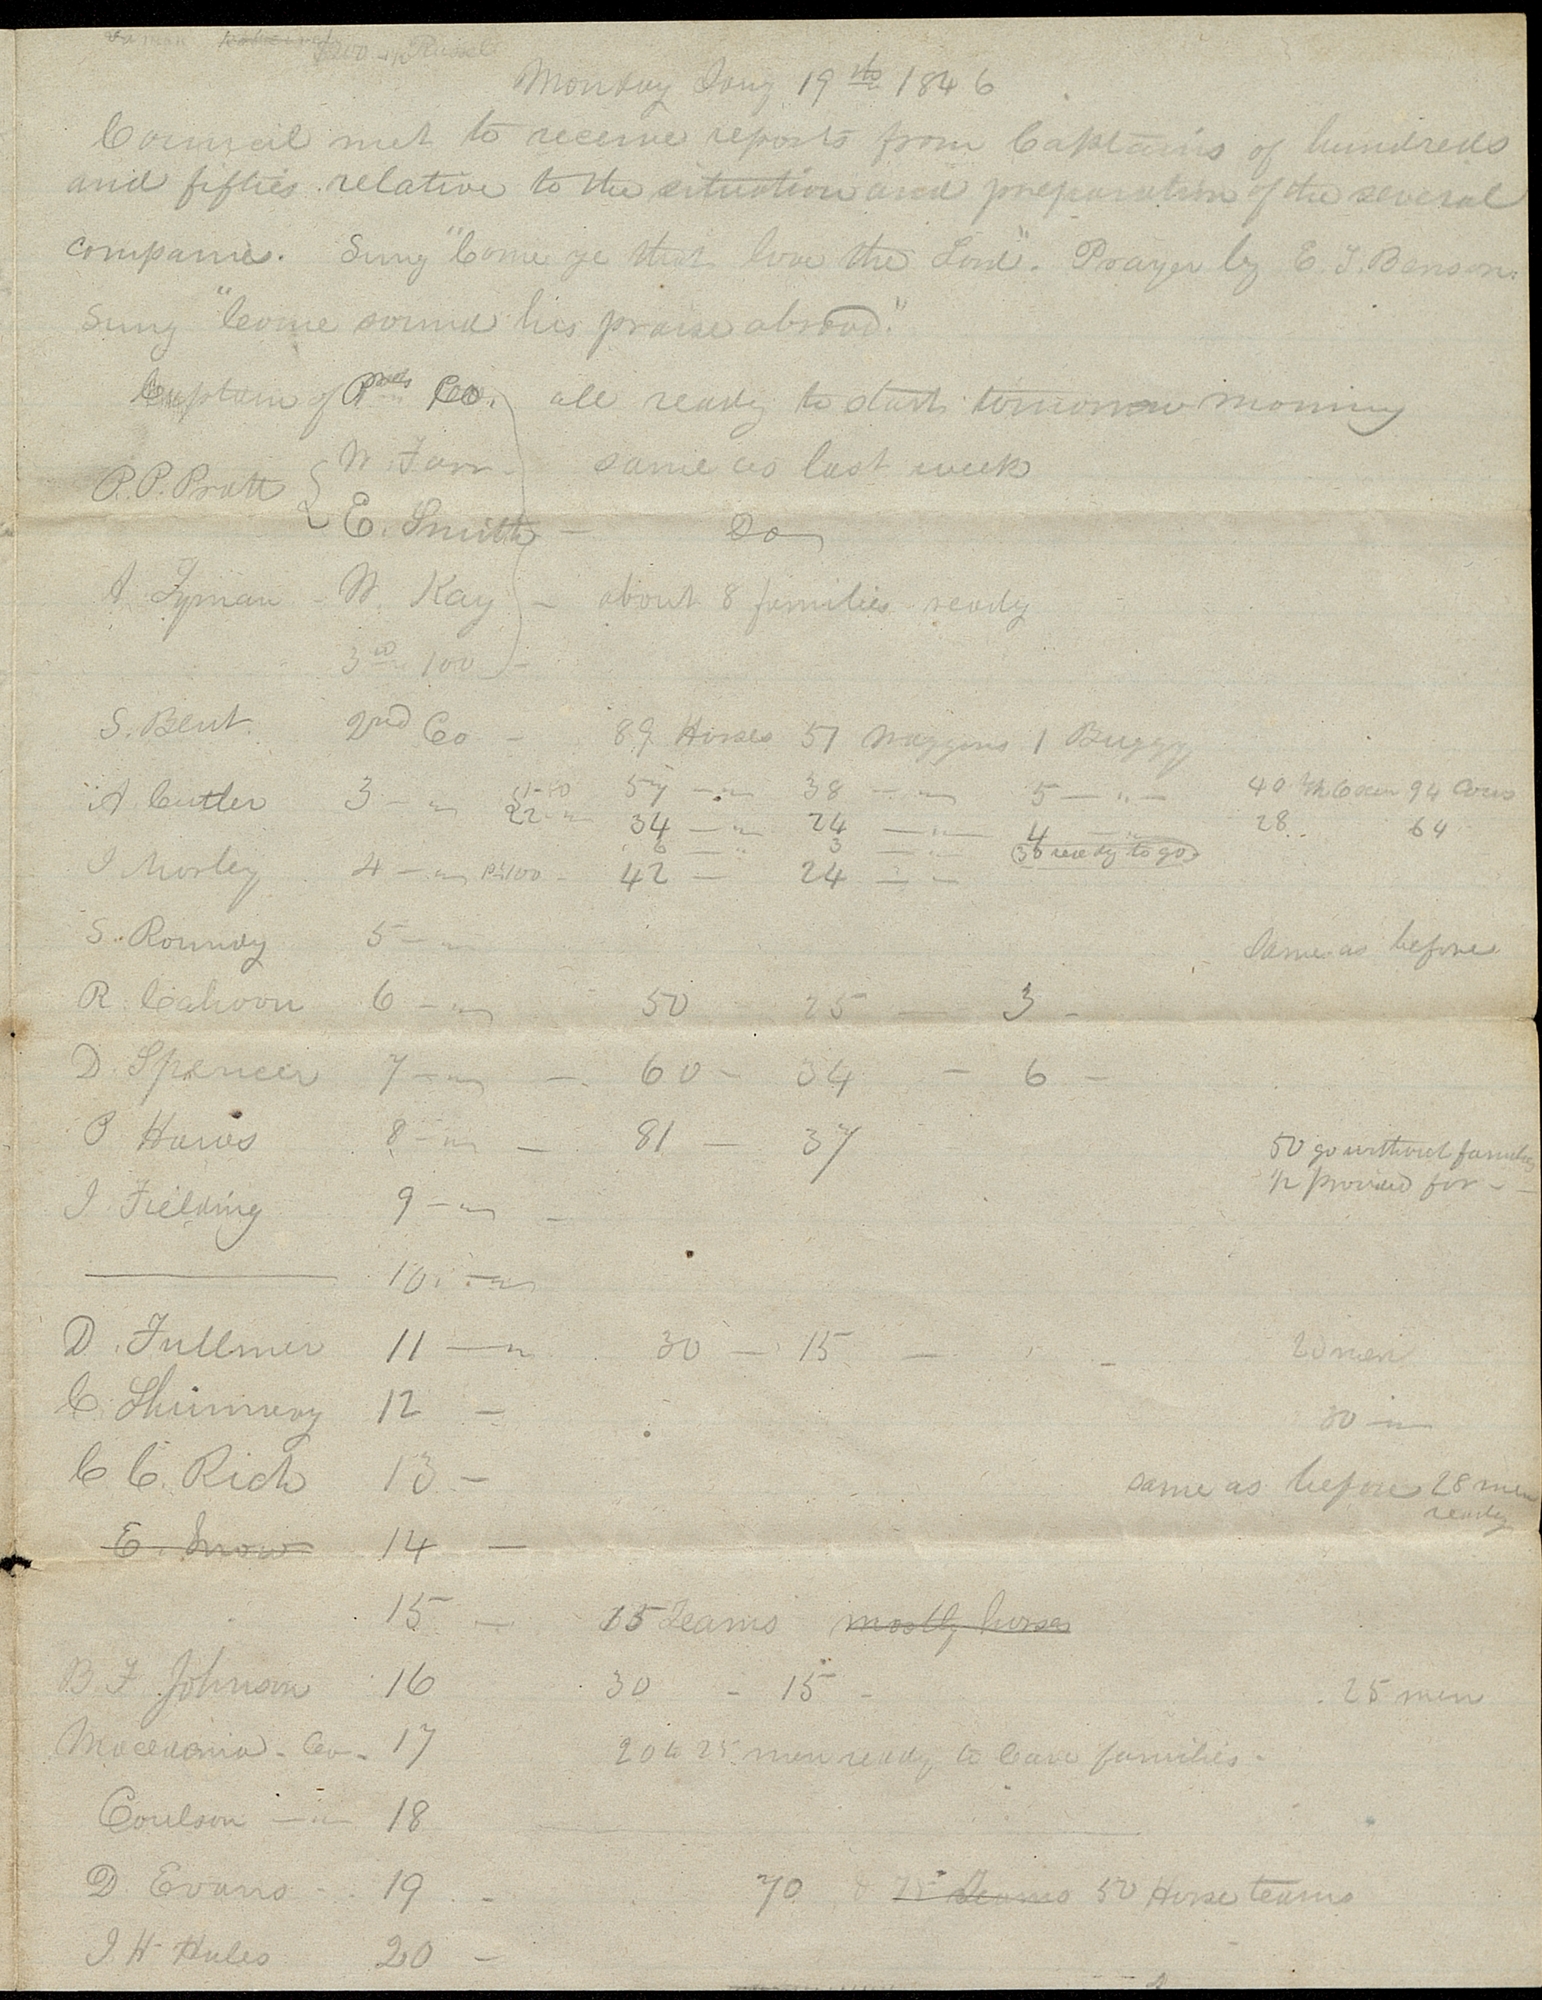 $200 Russel
Monday Jany 19th 1846
Council met to receive reports from Captains of hundreds
and fifties relative to the situation and preparation of the several
companies. Sung "Come ye that love the Lord". Prayer by E. T. Benson.
Sung "Come sound his praise abroad."
Captain of Co. all ready to start tomorrow morning
W. Farr - same as last week
P. P. Pratt
E. Smith - Do
A Lyman - W. Kay - about 8 families ready
3rd 100 -
S. Bent. 2nd Co - 89 Horses 51 Waggons 1 Buggy
A Cutler 3 - " 57 - " 38 - " 5 - " - 40 94 Cows
34 - " 24 - " 4 - " 28 64
6 - " 3 - " 36 ready to go
I Morley 4 - " 42 - 24 - -
S. Roundy 5 - " same as before
R. Cahoon 6 - " 50 25 - 3 -
D. Spencer 7 - " - 60 - 34 - 6 -
P Haws 8 - " - 81 - 37 50 go without families
1/2 provided for - -
J. Fielding 9 - " -
10. - "
D. Fullmer 11 - " 30 - 15 - - 20 men
C. Shumway 12 - 30 - "
C C. Rich 13 - same as before 28 men
ready
E. Snow 14 -
15 - 15 Teams mostly horses
B. F. Johnson 16 30 - 15 - 25 men
Macedonia - Co - 17 20 to 25 men ready to leave families -
Coulson - " - 18
D. Evans - 19 - 70 50 Horse teams
J. H Hales 20 -